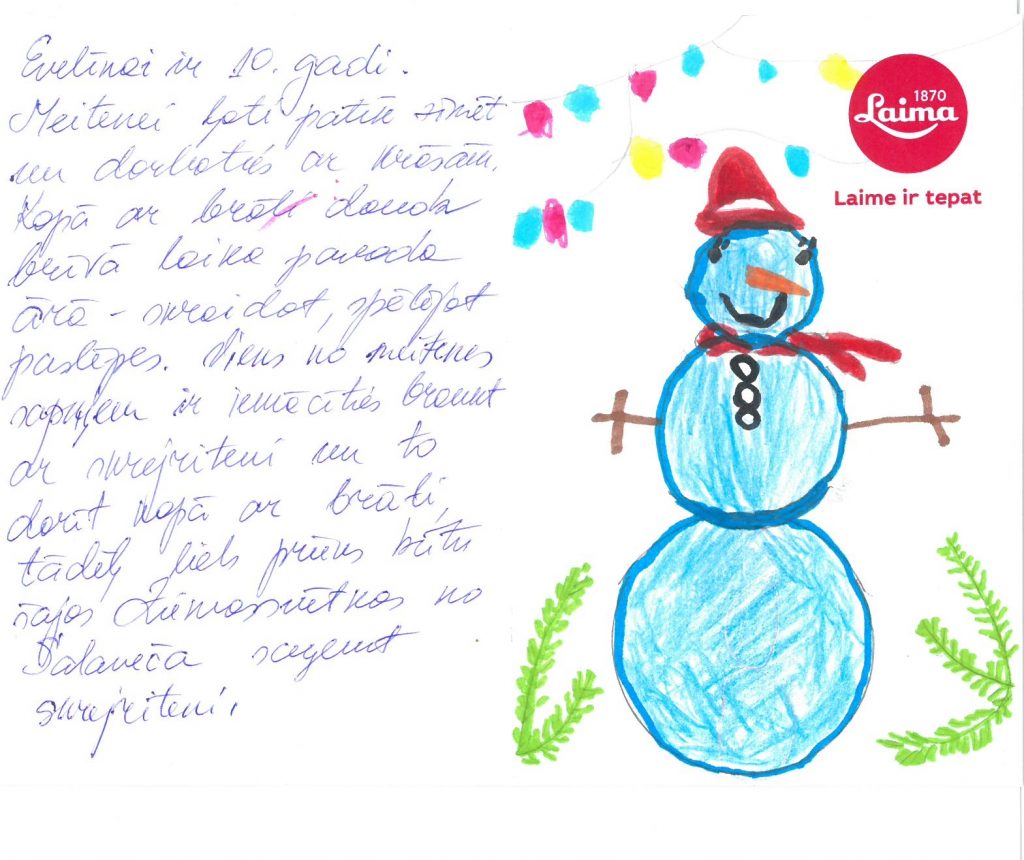 Evelīnai ir 10. gadi.
Meitenei ļoti patīk zīmēt
un darboties ar krāsām.
Kopā ar brāli daudz
brīvā laika pavada
ārā - skraidot, spēlējot
paslēpes. Viens no meitenes
sapņiem ir iemācīties braukt
ar skrejriteni un to
darīt kopā ar brāli,
tādēļ liels prieks būtu
šajos Ziemassvētkos no
Salaveča saņemt
skrejriteni.
1870
Laima
Laime ir tepat